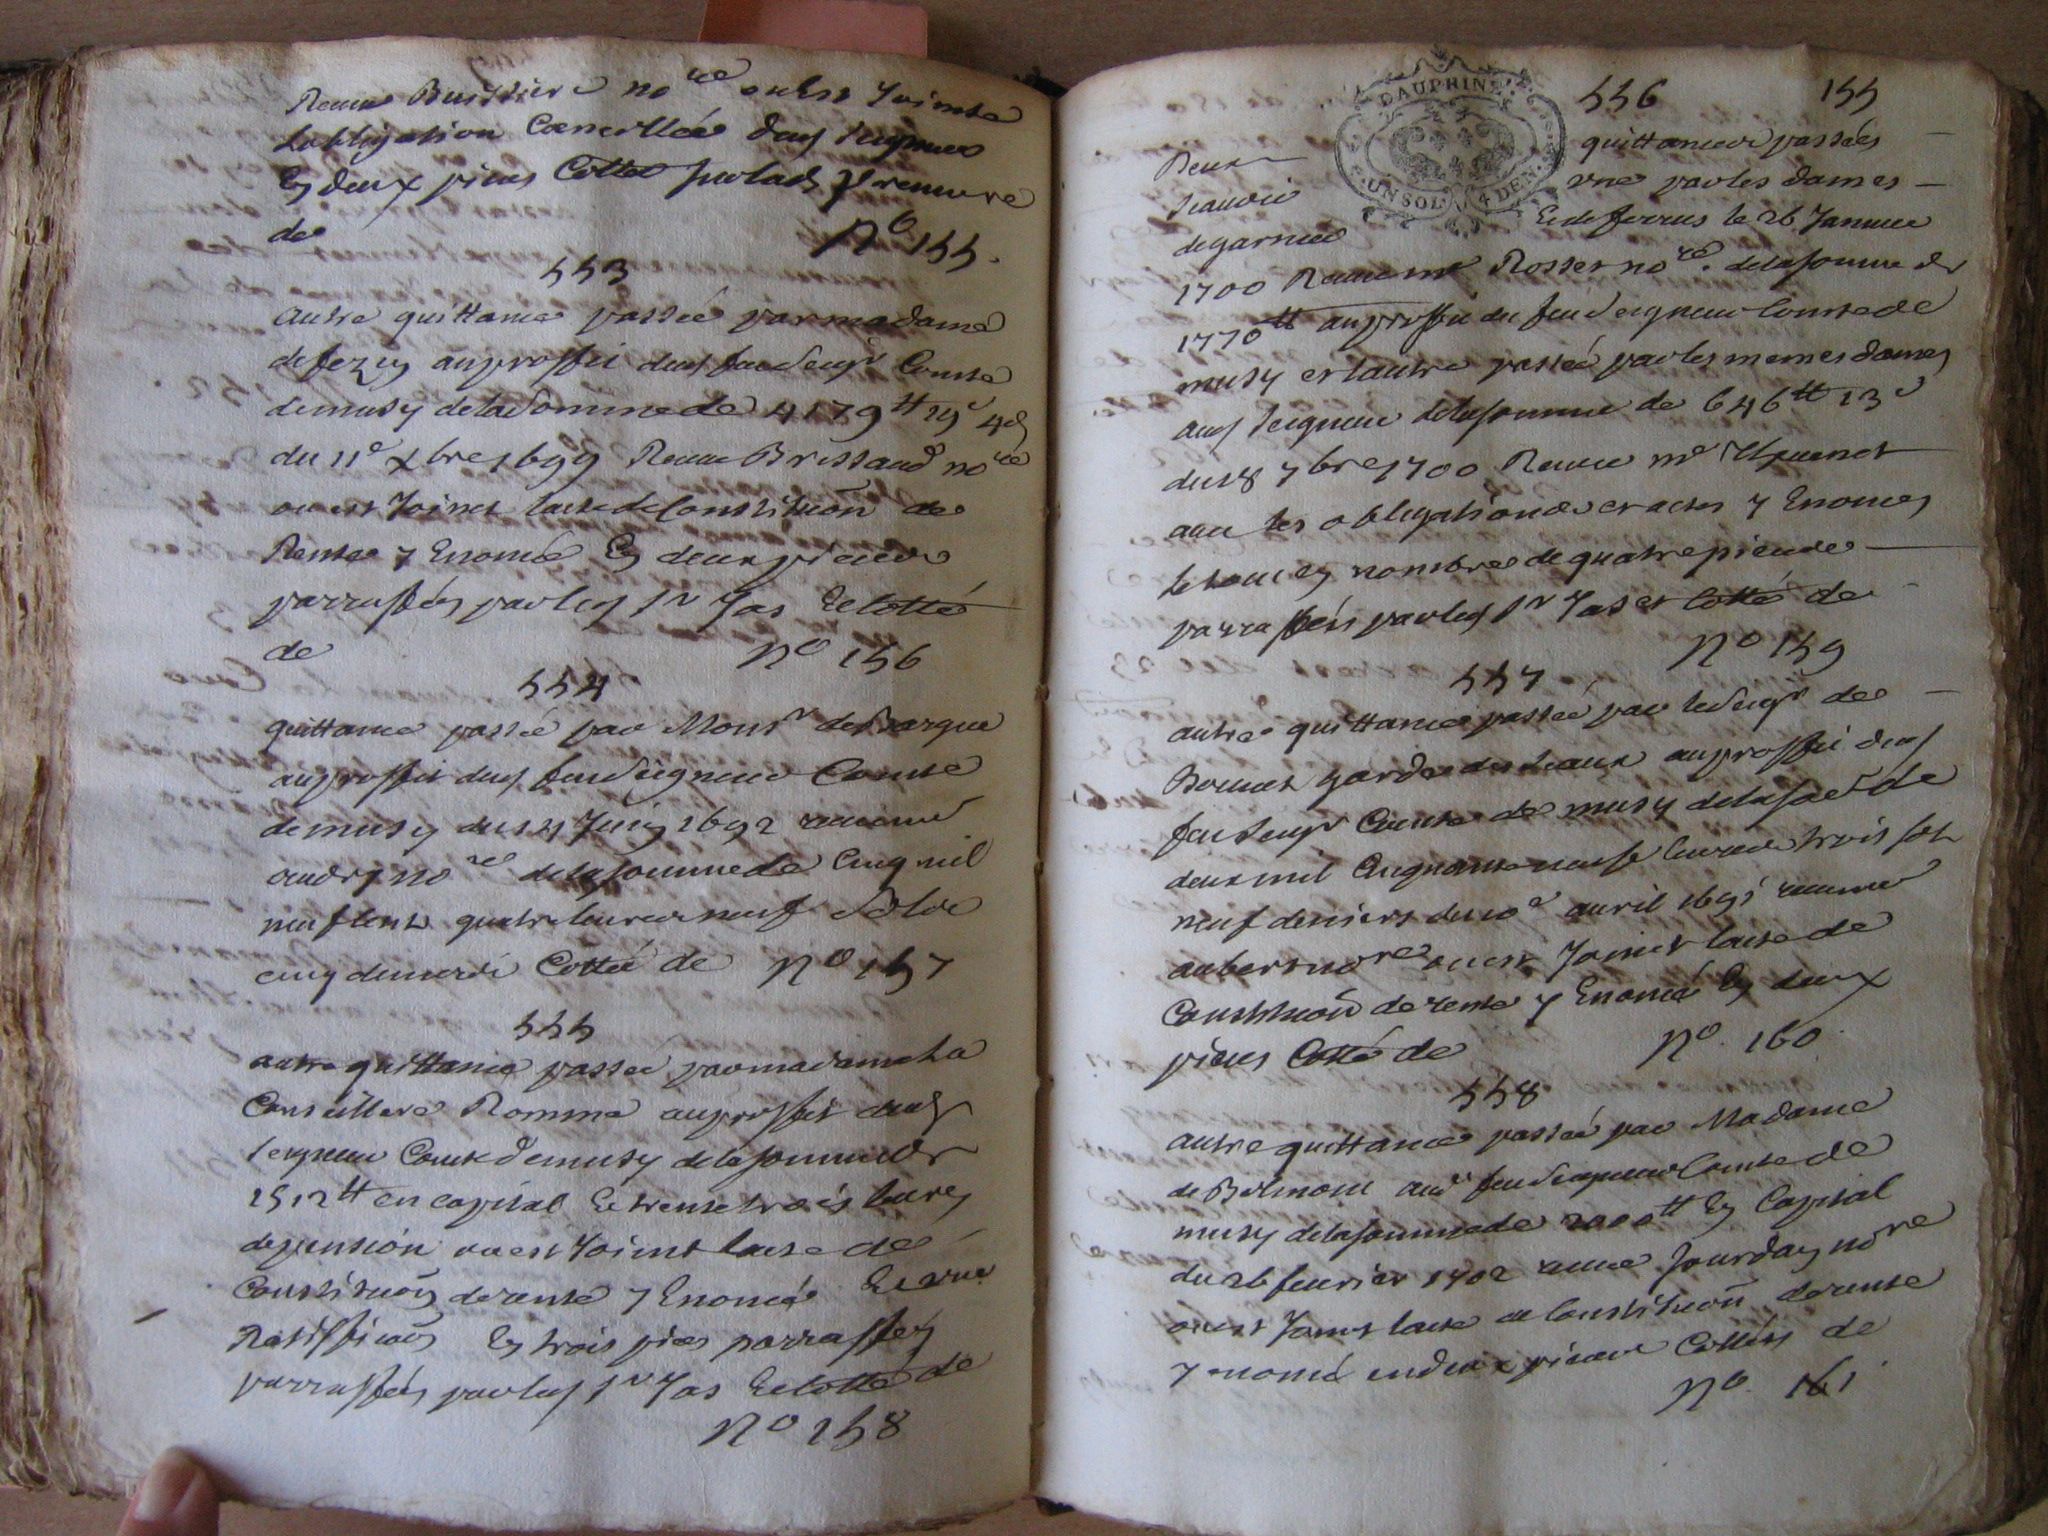 Receue Buissiere no.re ou est Jointe
Lobligation Cancellée dud seigneur
En deux pieces Cotté par lad premiere
de No 155.
553
autre quittance passée par madame
de au proffit dud feu seigr Comte
de musy de la somme de 4179tt 19s 4d
du 11e xbre 1699 Receue Brissaud no.re
ou est Joinct lacte de Constituon de
Rente y Enoncé En deux pieces
parraffées par led sr Jas Et cotté
de No 156
554
quittance passée par Monsr de
au proffit dud feu seigneur Comte
de musy du 14 Juin 1692 receue
no.re de la somme de Cinq mil
neuf Cents quatre livres neuf solz
cinq deniers Cottée de No 157
555
autre quittance passée par madame La
Conseillere Romme au proffit dud
seigneur Comte de musy de la somme de
1512tt en capital Et trente trois livres
de pension ou est Joinct lacte de
Constituon de rente y Enoncé Et une
Ratifficaon En trois pieces parraffées
parraffées par led sr Jas Et cotté de
No 158
DAUPHINÉ
UN SOL 4 DEN.
556 155
Deux quittances passées
une par les dames
de garnier Et de ferrus le 26 Janvier
1700 Receue me Rosset no.re de la somme de
1770tt au proffit du feu seigneur Comte de
musy et lautre passée par les memes dames
aud seigneur de la somme de 646tt 13s
du 18 7bre 1700 Receue me
avec les obligations et actes y Enoncés
le tout en nombre de quatre pieces
parraffées par led sr Jas et cotté de
No 159
557
autre quittance passée par le seigr de
garde des seaux au proffit dud
feu seigr Comte de musy de la so.e de
deux mil Cinquante neuf livres trois solz
neuf deniers du 10e avril 1691 receue
aubert no.re ou est Joinct lacte de
Constituon de rente y Enoncé En deux
pieces Cotté de No. 160
558
autre quittance passée par Madame
de Belmont aud feu seigneur Comte de
musy de la somme de 2000tt En Capital
du 26 fevrier 1702 receue Jourdan no.re
ou est Joinct lacte de Constituon de rente
y enoncé en deux pieces Cottées de
No. 161